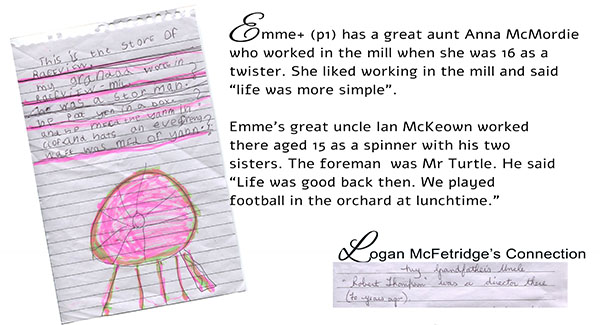 This is the store of
Backview.
my grandad work in
Backview mill
he was a stor man.
he Pat yen in a box
and he
Clof and hats an evrything
that was mad of yann.
Emme+ (p1) has a great aunt Anna McMordie
who worked in the mill when she was 16 as a
twister. She liked working in the mill and said
“life was more simple”.
Emme’s great uncle Ian McKeown worked
there aged 15 as a spinner with his two
sisters. The foreman was Mr Turtle. He said
“Life was good back then. We played
football in the orchard at lunchtime.”
Logan McFetridge’s Connection
my grandfathers Uncle
Robert Thompson was a director there
years ago).